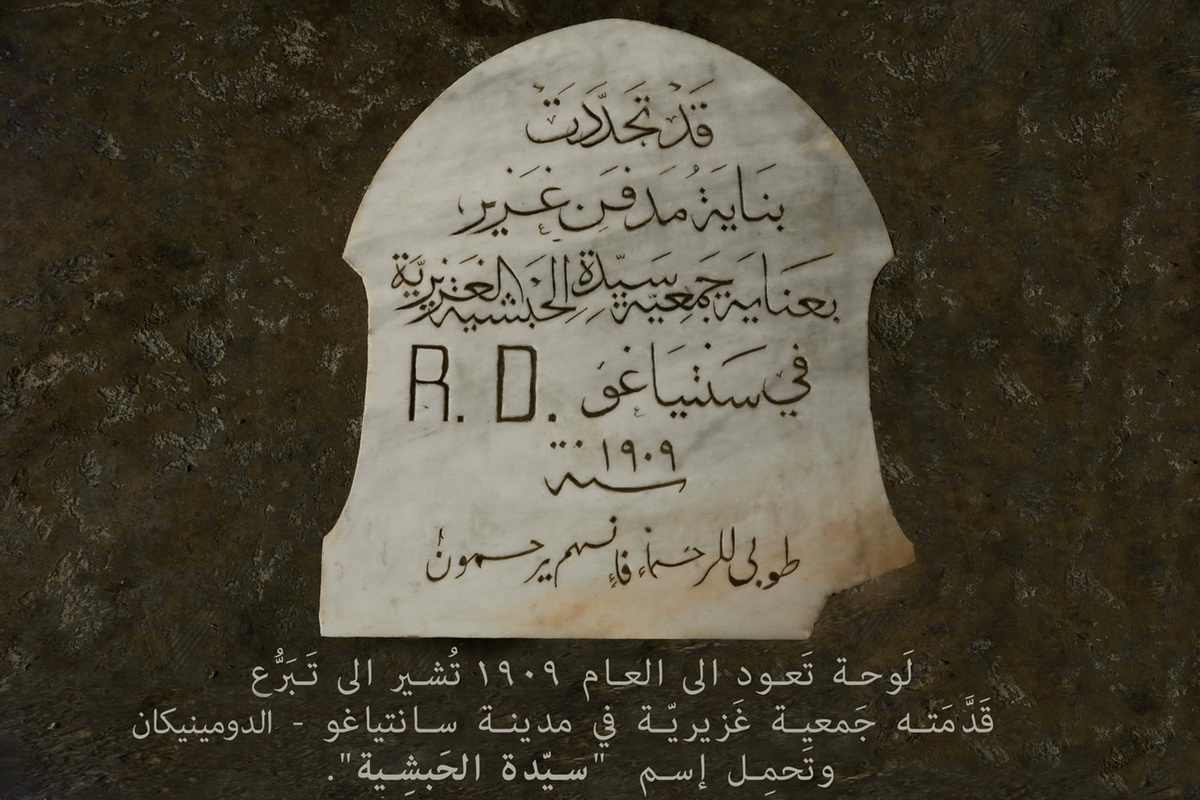 قَدْ تَجَدَّدَتْ
بنَايَةُ مَدفَن غَزير
بعنَايَة جَمعيّة سَيّدةِ الحَبْشيّة الغَزيريَّة
في سَنتيَاغو R. D.
سنة ١٩٠٩
طوبى للرحمآء فإنهم يرحمون
لَوحة تَعود الى العام ١٩٠٩ تُشير الى تَبَرُّع
قَدَّمَته جَمعية غَزيريّة في مدينة سانتياغو - الدومينيكان
وتَحمِل إسم "سيّدة الحَبشِية".